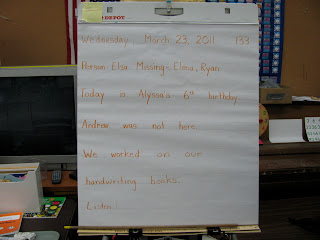 DEPOT
Wednesday, March 23, 2011 133
Person Elsa Missing- Elena, Ryan
Today is Alyssa's 6th birthday.
Andrew was not here.
We worked on our
handwriting books.